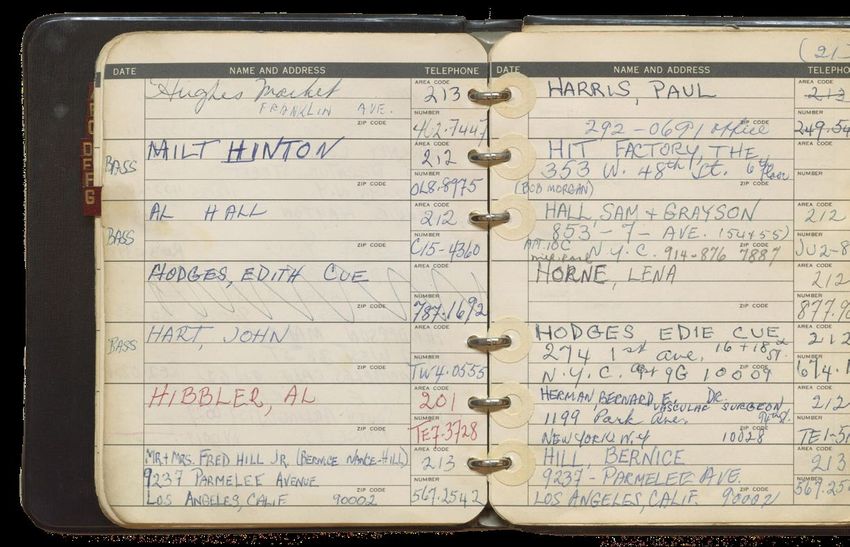 DATE NAME AND ADDRESS TELEPHONE
Hughes Market
FRANKLIN AVE.
ZIP CODE
AREA CODE
213
NUMBER
462.7447
BASS
MILT HINTON
ZIP CODE
AREA CODE
212
NUMBER
OL8-8975
BASS
AL HALL
ZIP CODE
AREA CODE
212
NUMBER
CI5-4360
HODGES, EDITH CUE
ZIP CODE
AREA CODE
NUMBER
787.1692
BASS
HART, JOHN
ZIP CODE
AREA CODE
NUMBER
TW4.0555
HIBBLER, AL
ZIP CODE
AREA CODE
201
NUMBER
TE7-3728
MR + MRS. FRED HILL JR. (BERNICE NANCE-HILL)
9237 PARMELEE AVENUE
LOS ANGELES, CALIF. ZIP CODE 90002
AREA CODE
213
NUMBER
567.2542
D
F
G
(213
DATE NAME AND ADDRESS TELEPHO
HARRIS, PAUL
292-0691 office
ZIP CODE
AREA CODE
213
NUMBER
249-54
HIT FACTORY, THE
353 W. 48th St. 6th floor
(BOB MORGAN)
ZIP CODE
AREA CODE
NUMBER
HALL, SAM + GRAYSON
853-7-AVE. (54+55)
APT. 10C N.Y.C. 914-876 7887
ZIP CODE
AREA CODE
212
NUMBER
JU2-8
HORNE, LENA
ZIP CODE
AREA CODE
212
NUMBER
877.9
HODGES EDIE CUE
274 1st ave. 16+18 st.
N.Y.C. apt 9G 10009
ZIP CODE
AREA CODE
212
NUMBER
674.1
HERMAN, BERNARD E. DR.
VASCULAR SURGEON
1199 Park Ave. 94th st.
NEW YORK, N.Y 10028
ZIP CODE
AREA CODE
212
NUMBER
TE1-5
HILL, BERNICE
9237 - PARMELEE AVE.
LOS ANGELES, CALIF. 90002
ZIP CODE
AREA CODE
213
NUMBER
567.25